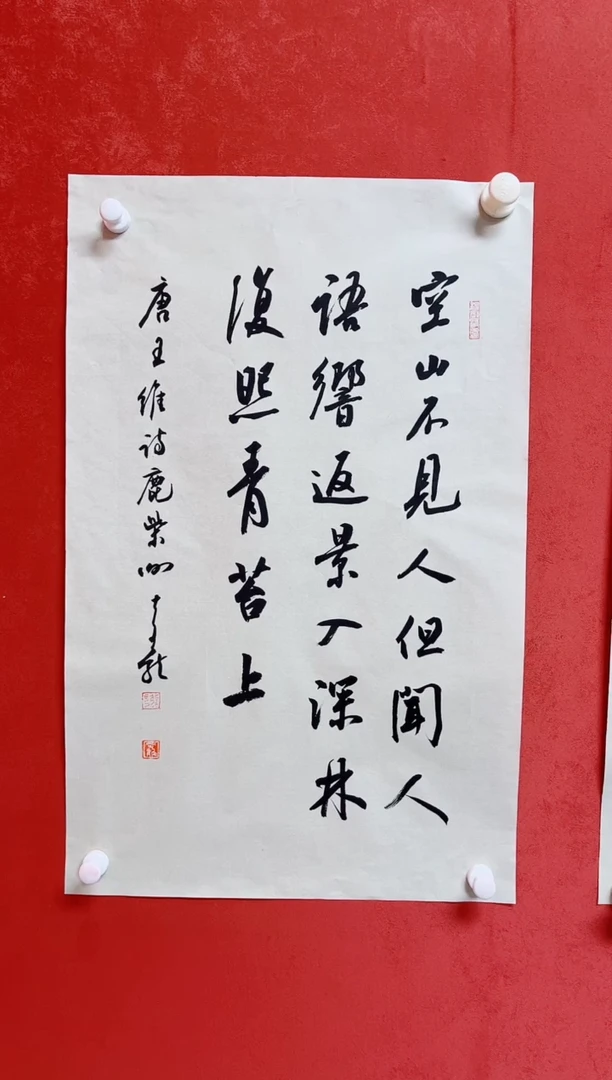 空山不見人但聞人
語響返景入深林
復照青苔上
唐王維诗鹿柴